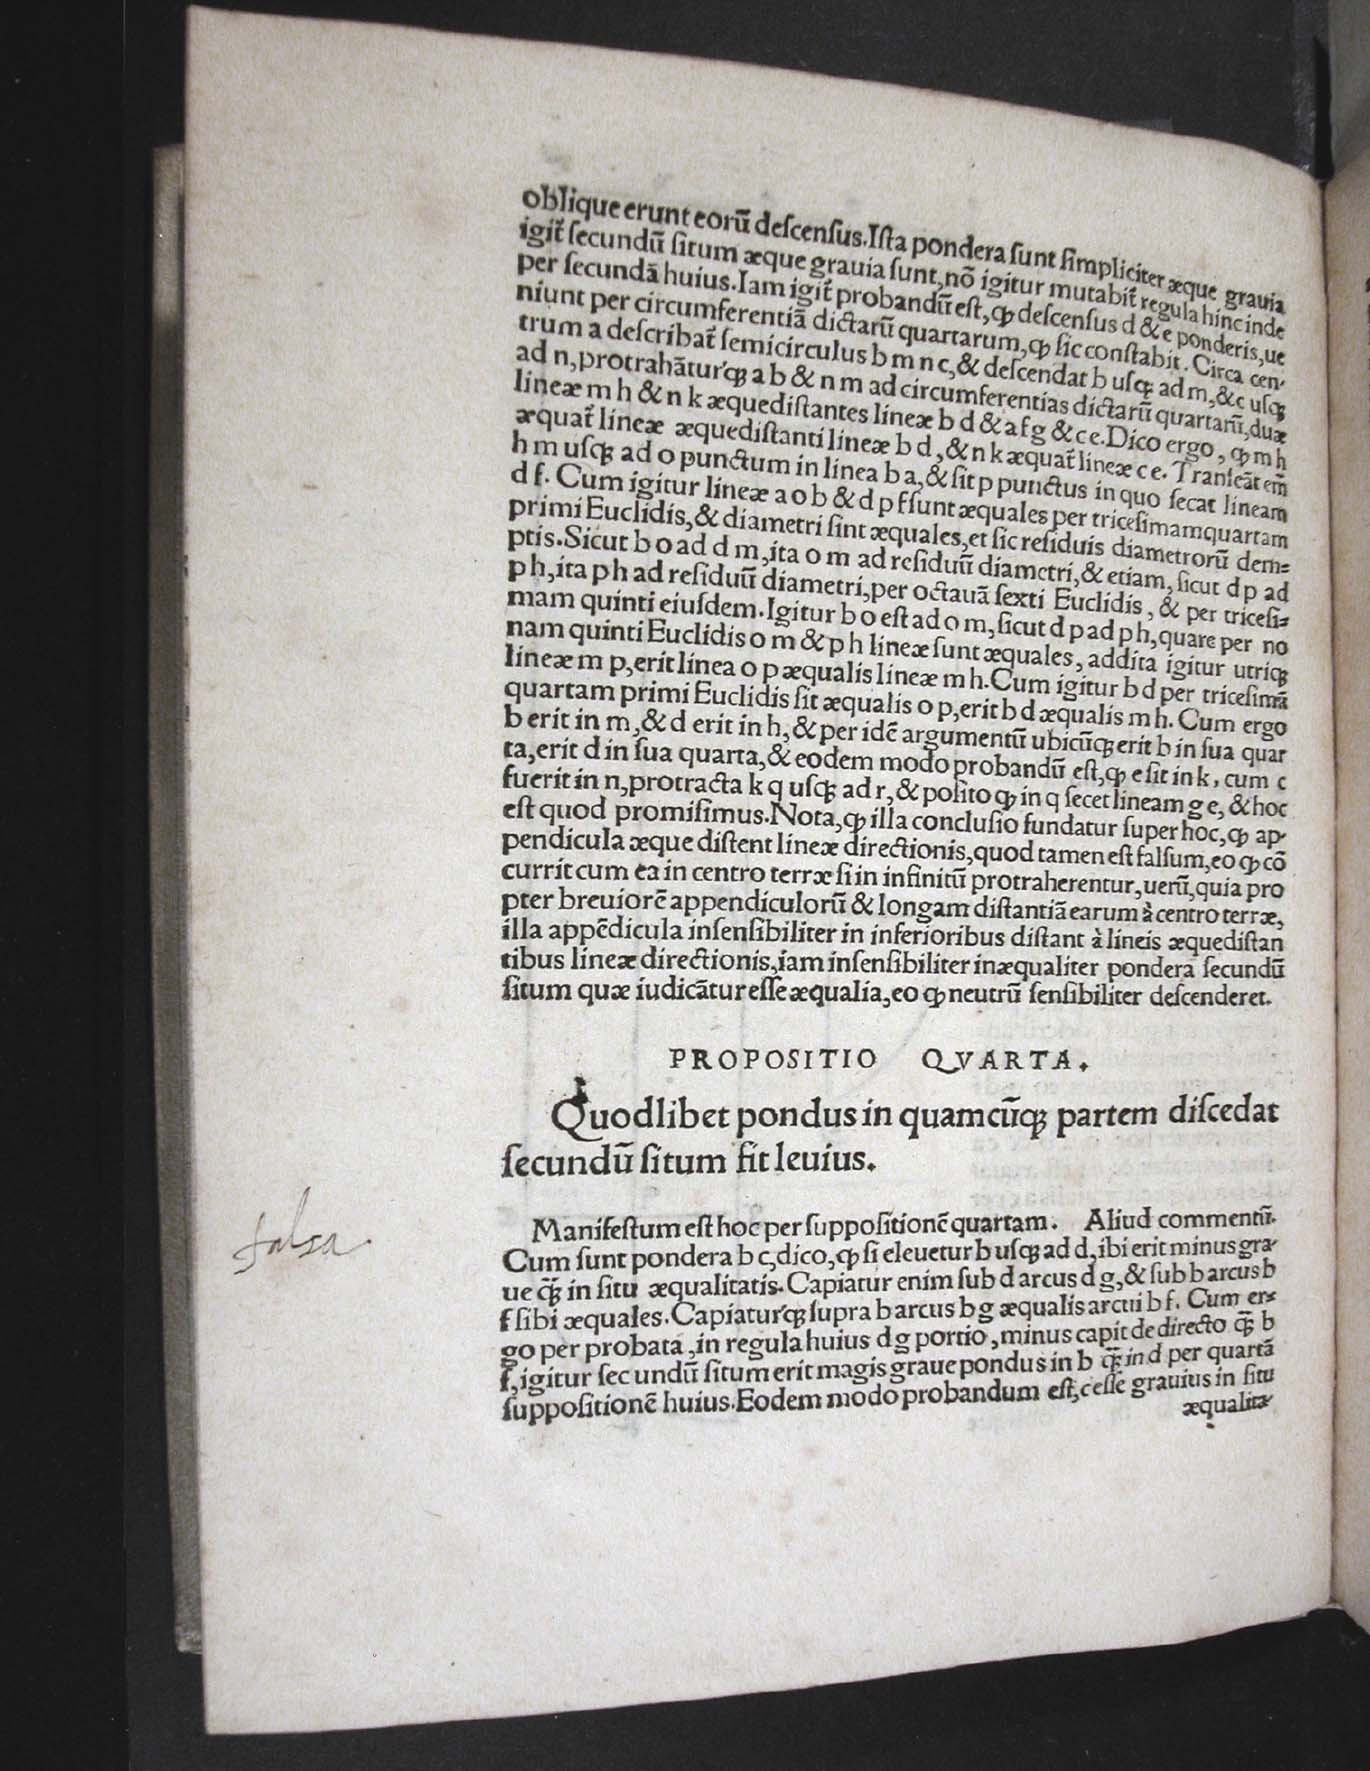 oblique erunt eorũ deſcenſus. Iſta pondera ſunt ſimpliciter æque grauia
igit᷑ ſecundũ ſitum æque grauia ſunt, nõ igitur mutabit᷑ regula hinc inde
per ſecundã huius. Iam igit᷑ probandũ eſt, ꝙ deſcenſus d & e ponderis, ue
niunt per circumferentiã dictarũ quartarum, ꝙ ſic conſtabit. Circa cen-
trum a deſcribat᷑ ſemicirculus b m n c, & deſcendat b uſqꝫ ad m, & c uſqꝫ
ad n, protrahãtur'qꝫ a b & n m ad circumferentias dictarũ quartarũ, duæ
lineæ m h & n k æquediſtantes lineæ b d & a f g & c e. Dico ergo, ꝙ m h
æquat᷑ lineæ æquediſtanti lineæ b d, & n k æquat᷑ lineæ c e. Tranſeãt em̃
h m uſqꝫ ad o punctum in linea b a, & ſit p punctus in quo ſecat lineam
d f. Cum igitur lineæ a o b & d p f ſunt æquales per triceſimamquartam
primi Euclidis, & diametri ſint æquales, et ſic reſiduis diametrorũ dem=
ptis. Sicut b o ad d m, ita o m ad reſiduũ diametri, & etiam, ſicut d p ad
p h, ita p h ad reſiduũ diametri, per octauã ſexti Euclidis, & per triceſi=
mam quinti eiuſdem. Igitur b o eſt ad o m, ſicut d p ad p h, quare per no
nam quinti Euclidis o m & p h lineæ ſunt æquales, addita igitur utriqꝫ
lineæ m p, erit linea o p æqualis lineæ m h. Cum igitur b d per triceſimã
quartam primi Euclidis ſit æqualis o p, erit b d æqualis m h. Cum ergo
b erit in m, & d erit in h, & per idẽ argumentũ ubicũqꝫ erit b in ſua quar
ta, erit d in ſua quarta, & eodem modo probandũ eſt, ꝙ e ſit in k, cum c
fuerit in n, protracta k q uſqꝫ ad r, & poſito ꝙ in q ſecet lineam g e, & hoc
eſt quod promiſimus. Nota, ꝙ illa concluſio fundatur ſuper hoc, ꝙ ap-
pendicula æque diſtent lineæ directionis, quod tamen eſt falſum, eo ꝙ cõ
currit cum ea in centro terræ ſi in infinitũ protraherentur, uerũ, quia pro
pter breuiorẽ appendiculorũ & longam diſtantiã earum à centro terræ,
illa appẽdicula inſenſibiliter in inferioribus diſtant à lineis æquediſtan
tibus lineæ directionis, iam inſenſibiliter inæqualiter pondera ſecundũ
ſitum quæ iudicãtur eſſe æqualia, eo ꝙ neutrũ ſenſibiliter deſcenderet.
PROPOSITIO QVARTA.
Quodlibet pondus in quamcũqꝫ partem diſcedat
ſecundũ ſitum fit leuius.
Manifeſtum eſt hoc per ſuppoſitionẽ quartam. Aliud commentũ.
falsa.
Cum ſunt pondera b c, dico, ꝙ ſi eleuetur b uſqꝫ ad d, ibi erit minus gra-
ue q̃ꝫ in ſitu æqualitatis. Capiatur enim ſub d arcus d g, & ſub b arcus b
f ſibi æquales. Capiatur'qꝫ ſupra b arcus b g æqualis arcui b f. Cum er-
go per probata, in regula huius d g portio, minus capit de directo q̃ꝫ b
f, igitur ſec undũ ſitum erit magis graue pondus in b q̃ꝫ in d per quartã
ſuppoſitionẽ huius. Eodem modo probandum eſt, c eſſe grauius in ſitu
æqualita-